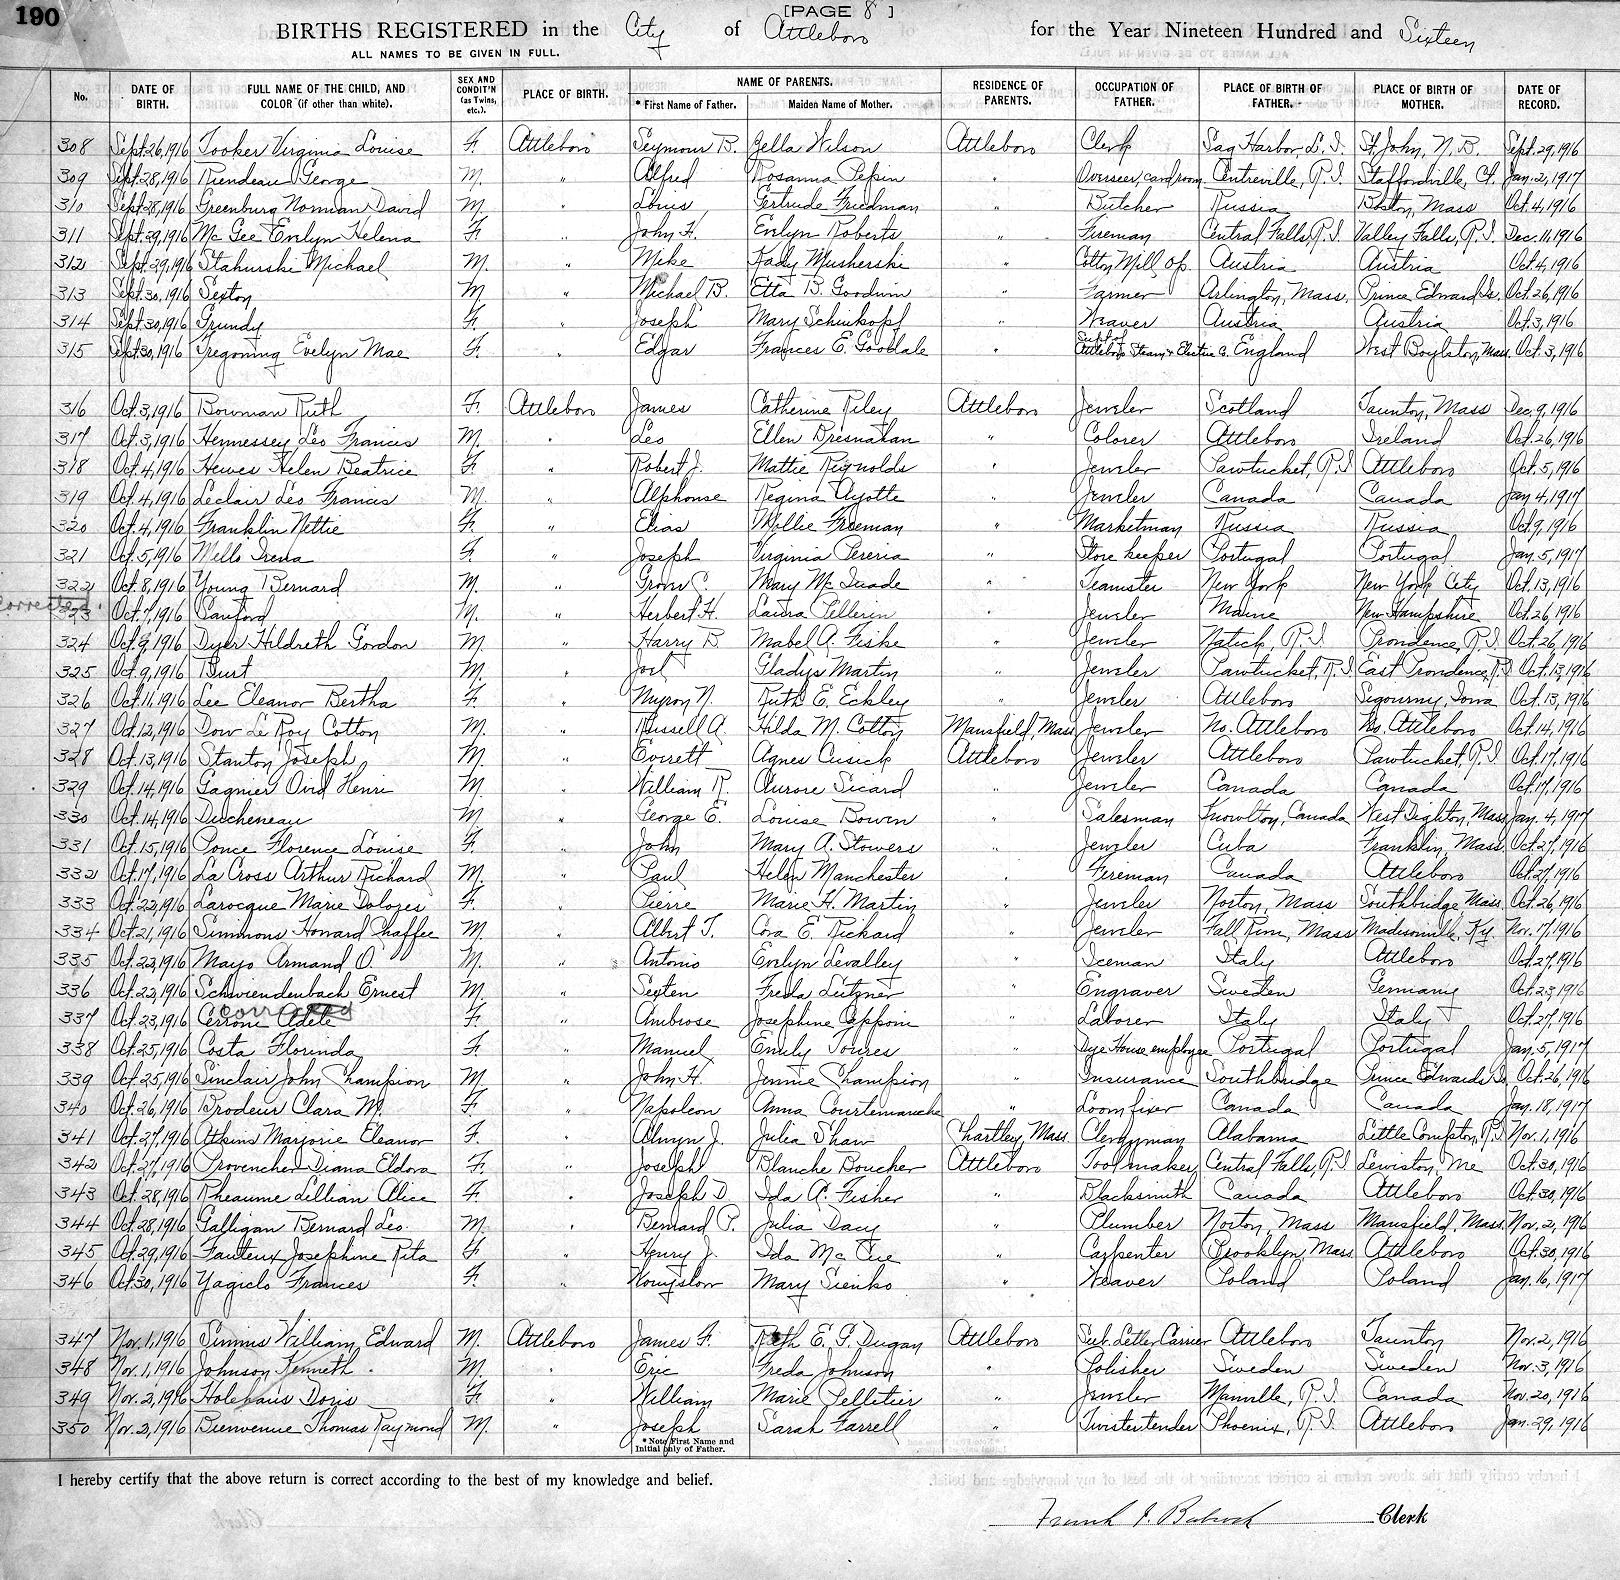 190
[PAGE 8]
BIRTHS REGISTERED in the City of Attleboro for the Year Nineteen Hundred and Sixteen
ALL NAMES TO BE GIVEN IN FULL.
No. DATE OF BIRTH. FULL NAME OF THE CHILD, AND COLOR (if other than white). SEX AND CONDIT'N (as Twins, etc.). PLACE OF BIRTH. NAME OF PARENTS. * First Name of Father. Maiden Name of Mother. RESIDENCE OF PARENTS. OCCUPATION OF FATHER. PLACE OF BIRTH OF FATHER. PLACE OF BIRTH OF MOTHER. DATE OF RECORD.
308 Sept. 26, 1916 Tooker Virginia Louise F. Attleboro Seymour B. Zella Wilson Attleboro Clerk Sag Harbor, L. I. St. John, N. B. Sept. 29, 1916
309 Sept. 28, 1916 Riendeau George M. " Alfred Rosanna Pepin " Overseer, card room Centreville, R. I. Staffordville, Ct. Jan. 2, 1917
310 Sept. 28, 1916 Greenburg Norman David M. " Louis Gertrude Friedman " Butcher Russia Boston, Mass Oct. 4, 1916
311 Sept. 29, 1916 Mc Gee Evelyn Helena F. " John H. Evelyn Roberts " Fireman Central Falls, R. I. Valley Falls, R. I. Dec. 11, 1916
312 Sept. 29, 1916 Stahurski Michael M. " Mike Kady Musherski " Cotton Mill Op. Austria Austria Oct. 4, 1916
313 Sept. 30, 1916 Sexton M. " Michael B. Etta B. Goodwin " Farmer Arlington, Mass. Prince Edward Is. Oct. 26, 1916
314 Sept. 30, 1916 Grundy F. " Joseph Mary Schinkopf " Weaver Austria Austria Oct. 3, 1916
315 Sept. 30, 1916 Tregoning Evelyn Mae F. " Edgar Frances E. Goodale " Supt. of Attleboro Steam & Electric Co. England West Boylston, Mass. Oct. 3, 1916
316 Oct. 3, 1916 Bowman Ruth F. Attleboro James Catherine Riley Attleboro Jeweler Scotland Taunton, Mass Dec. 9, 1916
317 Oct. 3, 1916 Hennessey Leo Francis M. " Leo Ellen Bresnahan " Colorer Attleboro Ireland Oct. 26, 1916
318 Oct. 4, 1916 Hewes Helen Beatrice F. " Robert J. Mattie Reynolds " Jeweler Pawtucket, R. I. Attleboro Oct. 5, 1916
319 Oct. 4, 1916 Leclair Leo Francis M. " Alphonse Regina Ayotte " Jeweler Canada Canada Jan. 4, 1917
320 Oct. 4, 1916 Franklin Nettie F. " Elias Mollie Freeman " Marketman Russia Russia Oct. 9, 1916
321 Oct. 5, 1916 Mello Irena F. " Joseph Virginia Pereria " Store keeper Portugal Portugal Jan. 5, 1917
322 Oct. 8, 1916 Young Bernard M. " Grover C. Mary Mc Quade " Teamster New York New York City Oct. 13, 1916
Corrected. 323 Oct. 7, 1916 Sanford M. " Herbert H. Laura Pellerin " Jeweler Maine New Hampshire Oct. 26, 1916
324 Oct. 9, 1916 Dyer Hildreth Gordon M. " Harry B. Mabel A. Fiske " Jeweler Natick, R. I. Providence, R. I. Oct. 26, 1916
325 Oct. 9, 1916 Burt M. " Joel Gladys Martin " Jeweler Pawtucket, R. I. East Providence, R. I. Oct. 13, 1916
326 Oct. 11, 1916 Lee Eleanor Bertha F. " Myron N. Ruth E. Eckley " Jeweler Attleboro Sigourney, Iowa Oct. 13, 1916
327 Oct. 12, 1916 Dow Le Roy Cotton M. " Russell A. Hilda M. Cotton Mansfield, Mass Jeweler No. Attleboro No. Attleboro Oct. 14, 1916
328 Oct. 13, 1916 Stanton Joseph M. " Everett Agnes Cusick Attleboro Jeweler Attleboro Pawtucket, R. I. Oct. 17, 1916
329 Oct. 14, 1916 Gagnier Ovid Henri M. " William R. Aurore Sicard " Jeweler Canada Canada Oct. 17, 1916
330 Oct. 14, 1916 Ducheneau M. " George E. Louise Bowen " Salesman Knowlton, Canada West Dighton, Mass Jan. 4, 1917
331 Oct. 15, 1916 Ponce Florence Louise F. " John Mary A. Stowers " Jeweler Cuba Franklin, Mass Oct. 27, 1916
332 Oct. 17, 1916 La Cross Arthur Richard M. " Paul Helen Manchester " Fireman Canada Attleboro Oct. 27, 1916
333 Oct. 22, 1916 Larocque Marie Dolores F. " Pierre Marie H. Martin " Jeweler Norton, Mass Southbridge Mass. Oct. 26, 1916
334 Oct. 21, 1916 Simmons Howard Chaffee M. " Albert T. Cora E. Rickard " Jeweler Fall River, Mass Madisonville, Ky. Nov. 17, 1916
335 Oct. 22, 1916 Mayo Armand O. M. " Antonio Evelyn Levalley " Iceman Italy Attleboro Oct. 27, 1916
336 Oct. 22, 1916 Schwiendenbach Ernest M. " Sexten Freda Leitzner " Engraver Sweden Germany Oct. 23, 1916
corrected
337 Oct. 23, 1916 Cerrone Adele F. " Ambrose Josephine Capponi " Laborer Italy Italy Oct. 27, 1916
338 Oct. 25, 1916 Costa Florinda F. " Manuel Emily Torres " Dye House employee Portugal Portugal Jan. 5, 1917
339 Oct. 25, 1916 Sinclair John Champion M. " John H. Jennie Champion " Insurance Southbridge Prince Edwards Is. Oct. 26, 1916
340 Oct. 26, 1916 Brodeur Clara M. F. " Napoleon Anna Courtemanche " Loom fixer Canada Canada Jan. 18, 1917
341 Oct. 27, 1916 Atkins Marjorie Eleanor F. " Alwyn J. Julia Shaw Chartley, Mass Clergyman Alabama Little Compton, R. I. Nov. 1, 1916
342 Oct. 27, 1916 Provencher Diana Eldora F. " Joseph Blanche Boucher Attleboro Tool maker Central Falls, R. I. Lewiston, Me Oct. 30, 1916
343 Oct. 28, 1916 Rheaume Lillian Alice F. " Joseph D. Ida A. Fisher " Blacksmith Canada Attleboro Oct. 30, 1916
344 Oct. 28, 1916 Galligan Bernard Leo. M. " Bernard P. Julia Dacy " Plumber Norton, Mass Mansfield, Mass. Nov. 2, 1916
345 Oct. 29, 1916 Fauteux Josephine Rita F. " Henry J. Ida Mc Cue " Carpenter Brooklyn, Mass Attleboro Oct. 30, 1916
346 Oct. 30, 1916 Yagielo Frances F. " Mary Sienko " Weaver Poland Poland Jan. 16, 1917
347 Nov. 1, 1916 Simms William Edward M. Attleboro James F. Ruth E. G. Dugan Attleboro Sub. Letter Carrier Attleboro Taunton Nov. 2, 1916
348 Nov. 1, 1916 Johnson Kenneth M. " Eric Freda Johnson " Polisher Sweden Sweden Nov. 3, 1916
349 Nov. 2, 1916 Holehaus Doris F. " William Marie Pelletier " Jeweler Manville, R. I. Canada Nov. 20, 1916
350 Nov. 2, 1916 Bienvenue Thomas Raymond M. " Joseph Sarah Farrell " Twister tender Phoenix, R. I. Attleboro Jan. 29, 1916
* Note First Name and Initial only of Father.
I hereby certify that the above return is correct according to the best of my knowledge and belief.
Frank I. Babcock Clerk